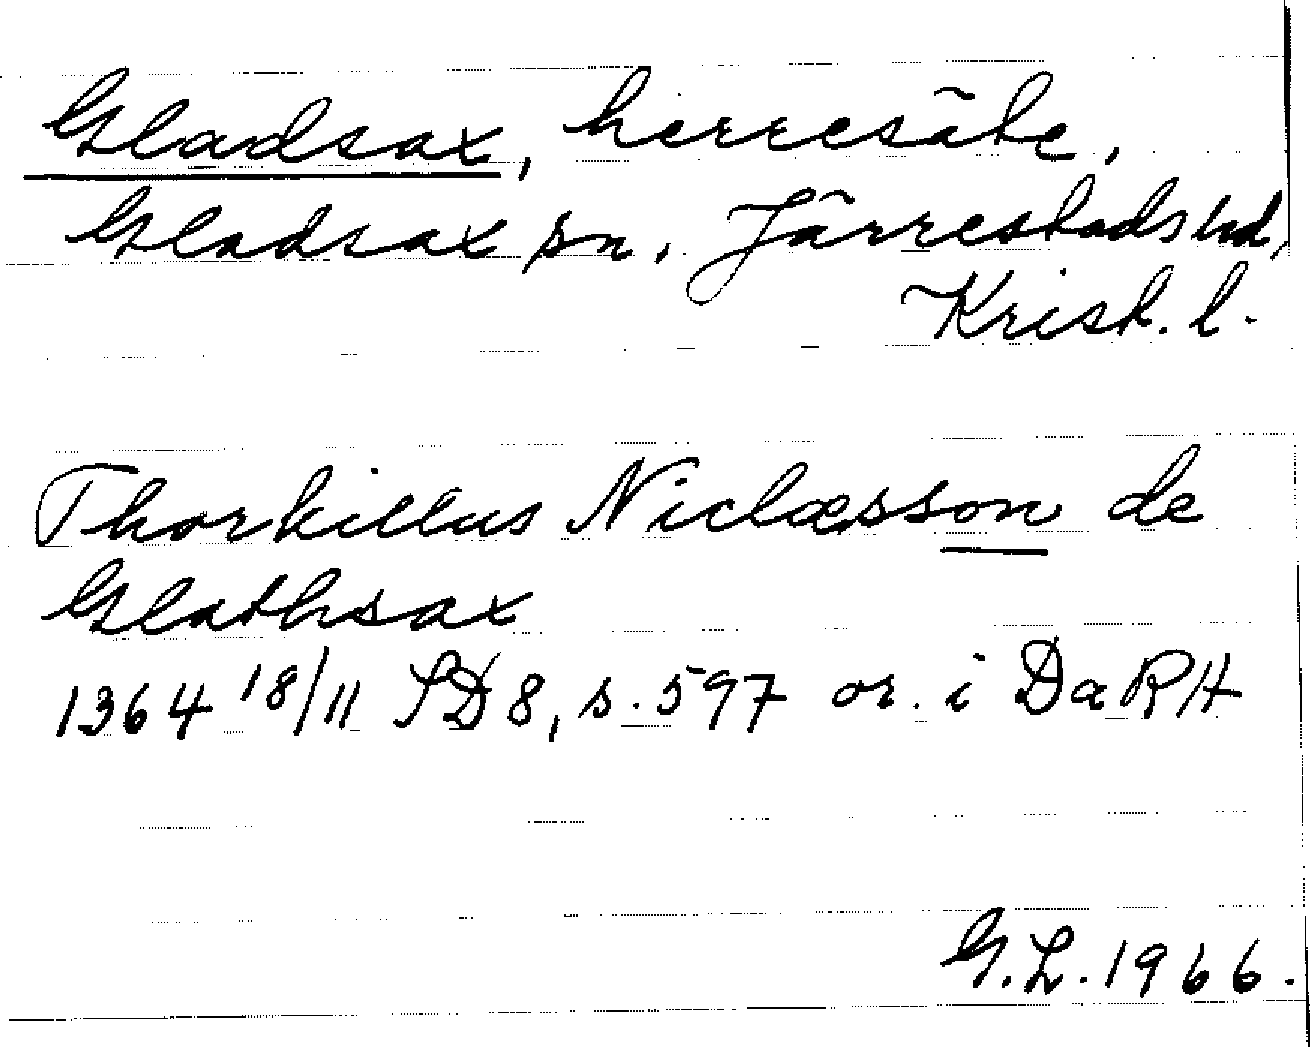 Gladsax, herresäte,
Gladsax sn. Järrestads hd,
Krist. l.
Thorkillus Niclæsson de
Glathsax
1364 18/11 SD 8, s. 597 or. i DaRH
G.L. 1966.